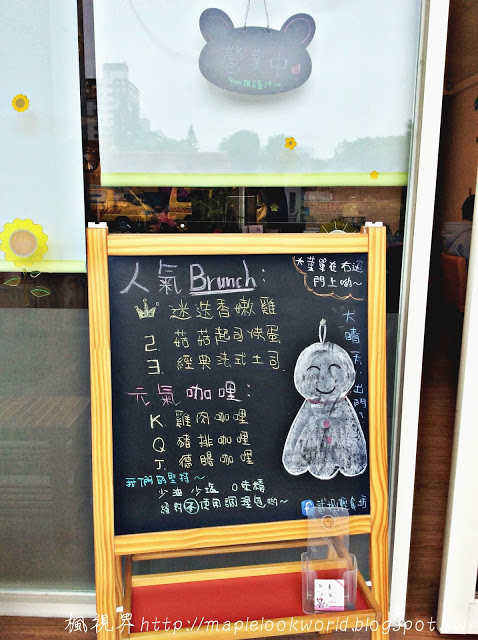 營業中
人氣 Brunch:
迷迭香嫩雞
2. 菇菇起司烘蛋
3. 經典法式土司
元氣咖哩:
K 雞肉咖哩
Q 豬排咖哩
J. 德腸咖哩
我們的堅持~
少油 少塩 0味精
絕對不使用調理包喲~
*菜單在右邊
門上喲~
大晴天出門
楓視界http://maplelookworld.blogspot.tw/